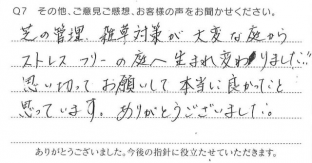 Q7 その他、ご意見ご感想、お客様の声をお聞かせください。
芝の管理、雑草対策が大変な庭から
ストレスフリーの庭へ生まれ変わりました!!
思い切ってお願いして本当に良かったと
思っています。ありがとうございました。
ありがとうございました。今後の指針に役立たせていただきます。